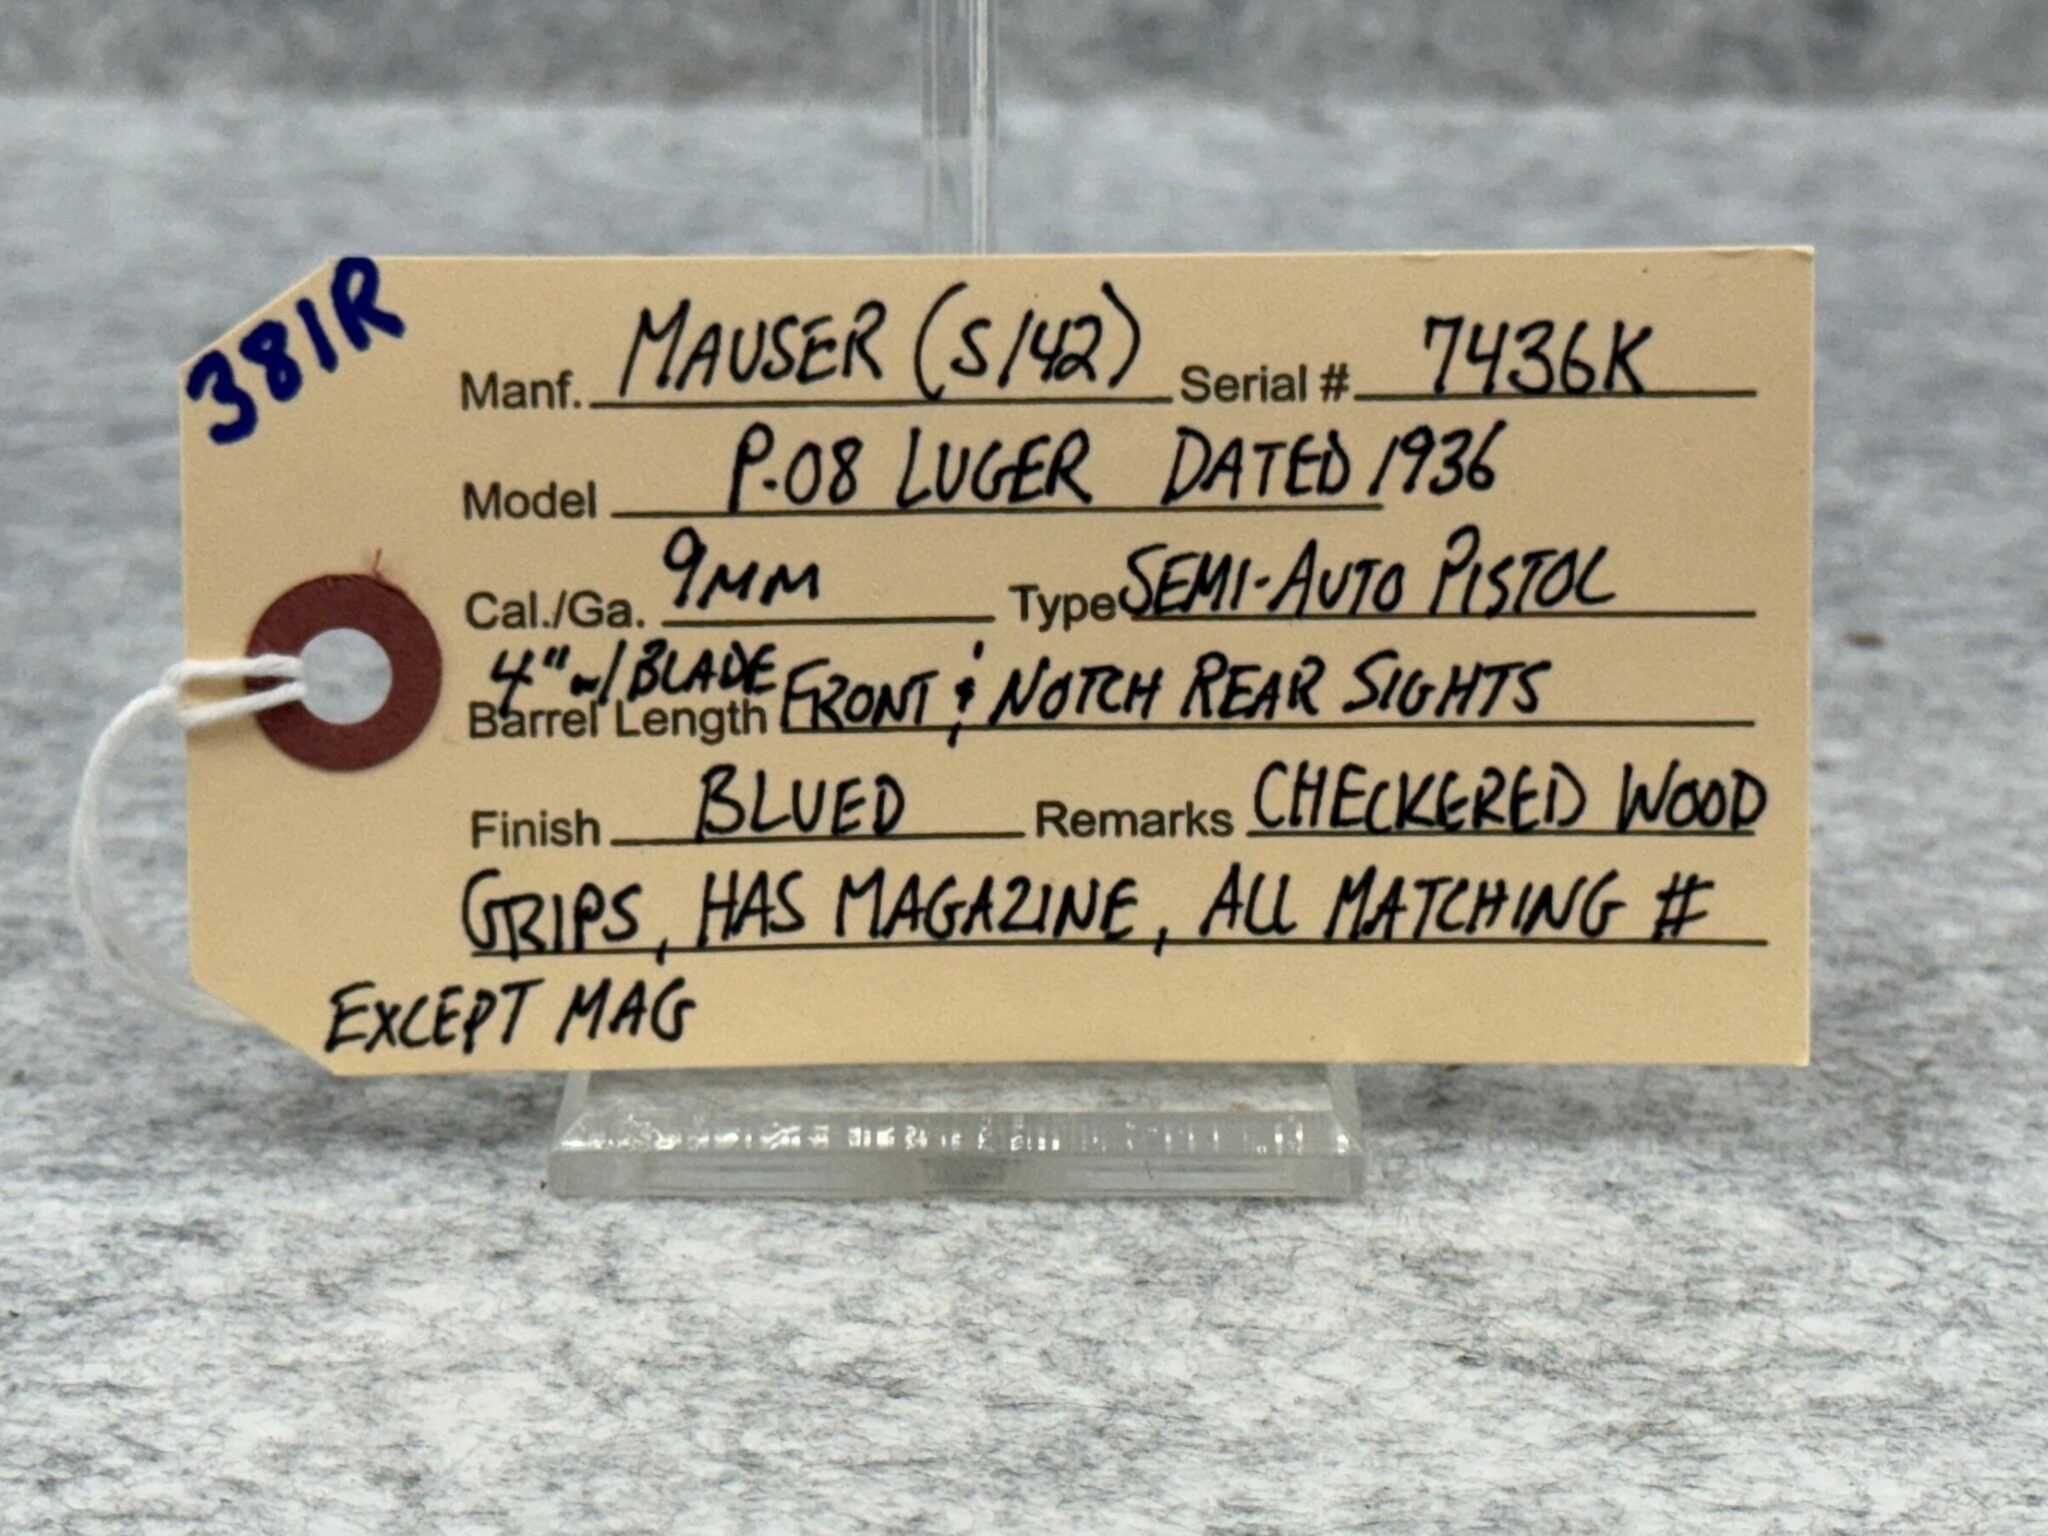 381R
Manf. MAUSER (S/42) Serial # 7436K
Model P.08 LUGER DATED 1936
Cal./Ga. 9MM Type SEMI-AUTO PISTOL
Barrel Length 4" w/ BLADE FRONT & NOTCH REAR SIGHTS
Finish BLUED Remarks CHECKERED WOOD
GRIPS, HAS MAGAZINE, ALL MATCHING #
EXCEPT MAG